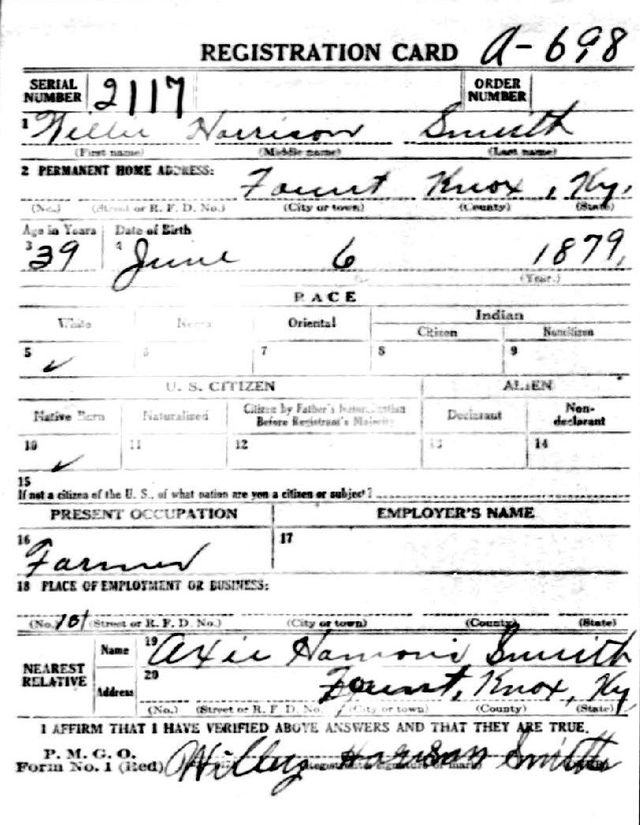 REGISTRATION CARD A-698
SERIAL NUMBER 2117 ORDER NUMBER
1 Willie Harrison Smith
(First name) (Middle name) (Last name)
2 PERMANENT HOME ADDRESS: Fount Knox, Ky.
(No.) (Street or R. F. D. No.) (City or town) (County) (State)
Age in Years Date of Birth
3 39 4 June 6 1879,
(Year.)
RACE
White Negro Oriental Indian
Citizen Noncitizen
5 ✓ 6 7 8 9
U. S. CITIZEN ALIEN
Native Born Naturalized Citizen by Father's Naturalization Before Registrant's Majority Declarant Non-declarant
10 ✓ 11 12 13 14
15
If not a citizen of the U. S., of what nation are you a citizen or subject?
PRESENT OCCUPATION EMPLOYER'S NAME
16 Farmer 17
18 PLACE OF EMPLOYMENT OR BUSINESS:
(No.) 101 (Street or R. F. D. No.) (City or town) (County) (State)
NEAREST RELATIVE Name 19 Axie Smith
Address 20 Fount, Knox, Ky
(No.) (Street or R. F. D. No.) (City or town) (County) (State)
I AFFIRM THAT I HAVE VERIFIED ABOVE ANSWERS AND THAT THEY ARE TRUE.
P. M. G. O.
Form No. 1 (Red) Smith